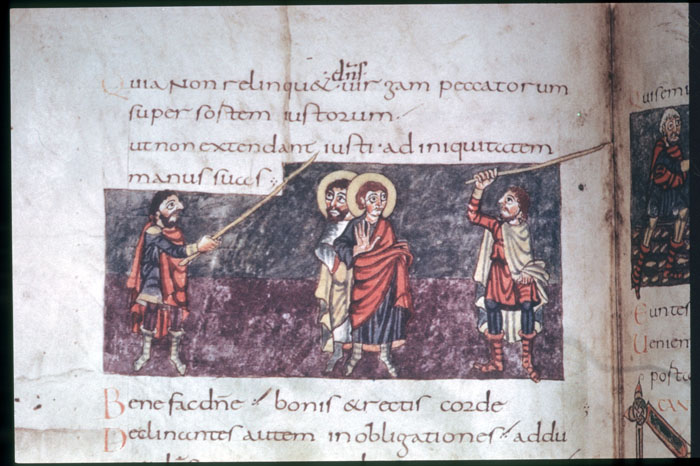 Quia non relinqu& dn̄s uirgam peccatorum
super sostem iustorum
ut non extendant iusti ad iniquitatem
manus suas
Bene fac dn̄e bonis & rectis corde
Declinantes autem in obligationes addu
Euntes
Uenien